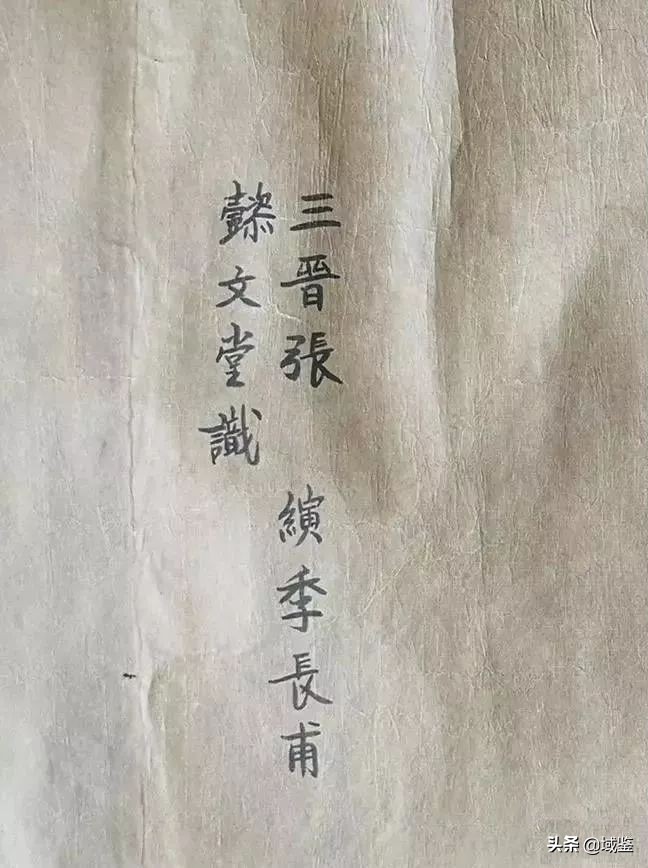 三晋張 縯季長甫
懿文堂識
头条 @域鉴